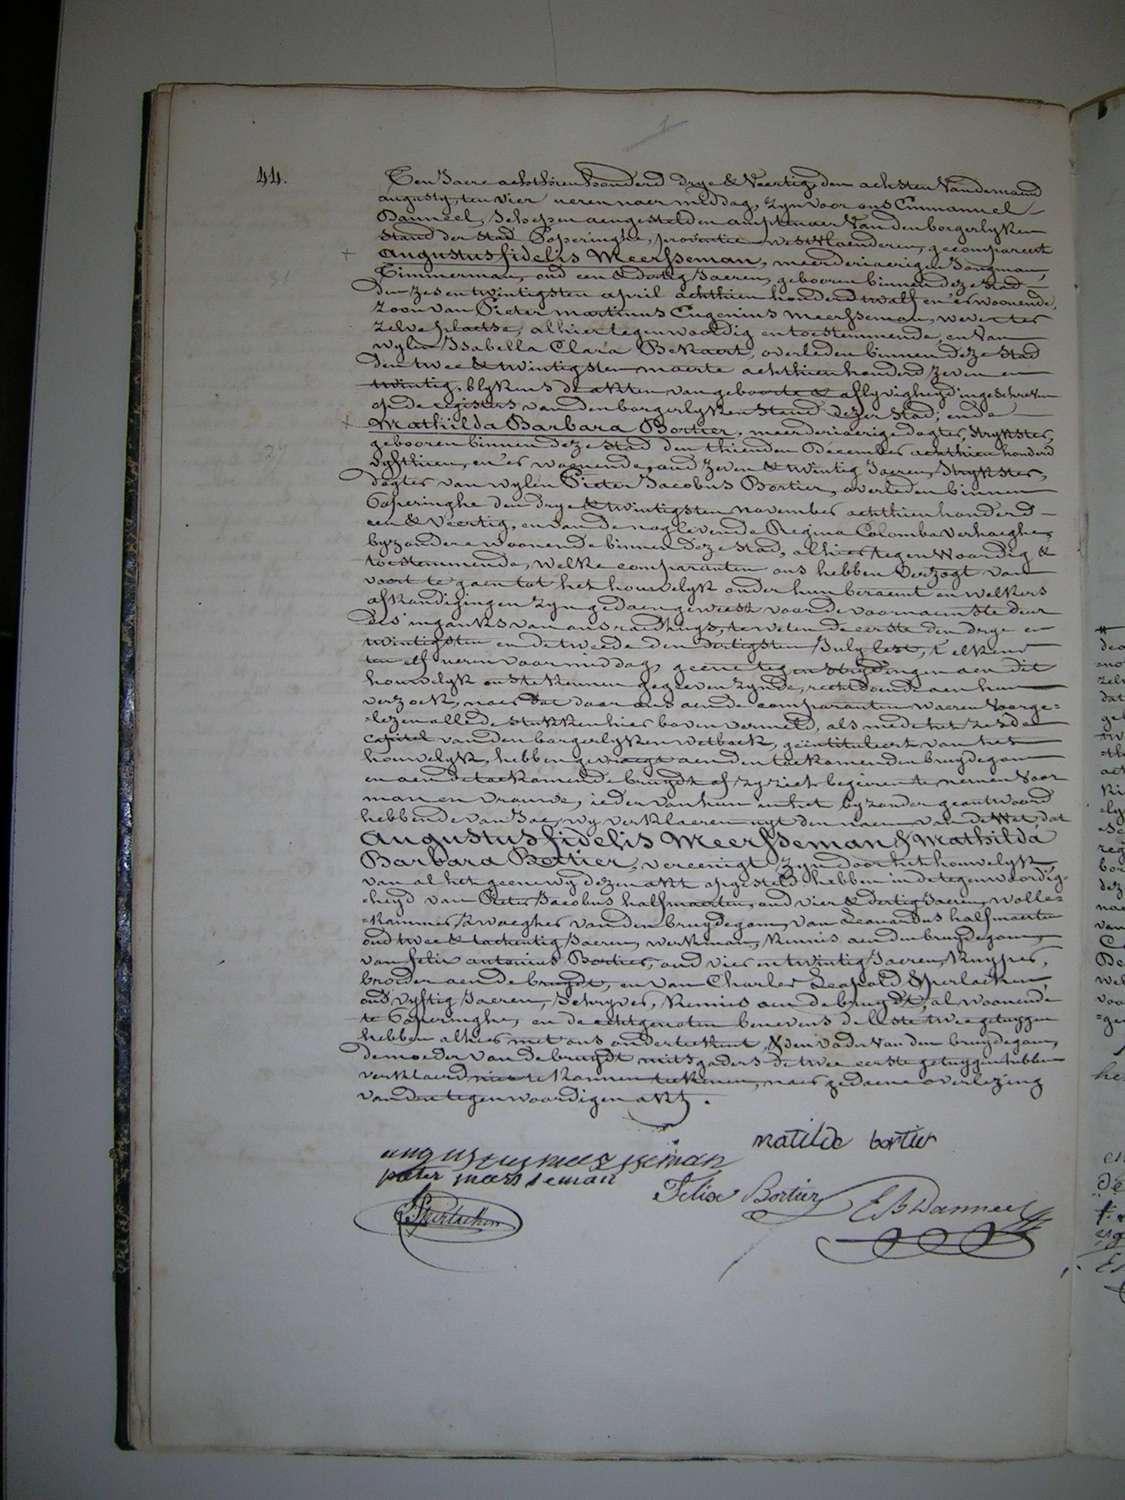 44.
Ten Jaere achthienhonderd drye & Veertig den achsten Van de maend
augusty, ten vier ueren naer middag, zyn voor ons Emmanuel
Danneel, Schepen aengestelden amptenaer Van den borgerlyken
stand der stad Poperinghe, provintie westvlaenderen, gecompareert
Augustus fidelis Meersseman, meerderjaerigen Jongman,
Timmerman, oud een & dertig Jaeren, gebooren binnen deze Stad
den zes en twintigsten april achthien honderd twalf en er woonende,
zoon van Pieter martinus Eugenius Meersseman, wever ter
zelve plaetse, alhier tegenwoordig en toestemmende, en Van
wylen Isabella Clara Bekaert, overleden binnen deze Stad
den twee & twintigsten maerte achthien honderd zeven en
twintig, blykens de akten van geboorte & aflyvigheyd ingeschreven
op de registers van den borgerlyken Stand dezer Stad; ende
Mathilda Barbara Bortier, meerderjaerige dogter, Strykster,
gebooren binnen deze Stad den thienden December achthien honderd
vyfthien, en er woonende, oud zeven & twintig Jaeren, Strykster,
dogter van wylen Pieter Jacobus Bortier, overleden binnen
Poperinghe den drye & twintigsten november achthien honderd
een & Veertig, en van de nog levende Regina Colomba Verhaeghe,
byzondere woonende binnen deze Stad, alhier tegenwoordig &
toestemmende, welke comparanten ons hebben Verzogt van
voort te gaen tot het houwelyk onder hun beraemt en welkers
afkondigingen zyn gedaen geweest voor de voornaemste deur
des inganks van ons radthuys, te weten de eerste den drye en
twintigsten en de tweede den dertigsten July lest, t'elkens
ten elf ueren voormiddag, geene tegenstrydingen aen dit
houwelyk ons te kennen gegeven zynde, rechtdoende aen hun
verzoek, naer dat daer ons aen de comparanten waeren voorge-
-lezen alle de stukken hier boven vermeld, als mede het zesde
Capitel van den borgerlyken wetboek, geïntituleert van het
houwelyk, hebben gevraegt aen den toekomenden bruydegom
en aen de toekomende bruydt of zy zich begeiren te nemen voor
man en vrouwe, ieder van hun in het byzonder geantwoord
hebbende van Jae, wy verklaeren uyt den naem van de Wet, dat
Augustus fidelis Meersseman & Mathilda
Barbara Bortier, vereenigt zyn door het houwelyk,
van al het geene wy dezen akt opgesteld hebben in de tegenwoordig-
-heyd van Pieter Jacobus halfmaerten, oud vier & dertig Jaeren, wolle-
-kammer, zwaegher van den bruydegom, van Leonardus halfmaerten
oud twee & tachentig Jaeren, werkman, Kennis aen den bruydegom,
van felix antonius Bortier, oud vier en twintig Jaeren, Kuyper,
broeder aen de bruydt, en van Charles Leopold Sperlaeken,
oud vyftig Jaeren, Schryver, Kennis aen de bruydt, al woonende
te Poperinghe, en de echtgenoten benevens de leste twee getuygen
hebben alhier met ons onderteekent, & den vader van den bruydegom,
de moeder van de bruydt mitsgaders de twee eerste getuygen hebben
verklaerd niet te konnen teekenen, naer gedaene overlezing
van den tegenwoordigen akt.
matilde bortier
augustus meersseman
pieter meersseman
Felix Bortier
E B Danneel